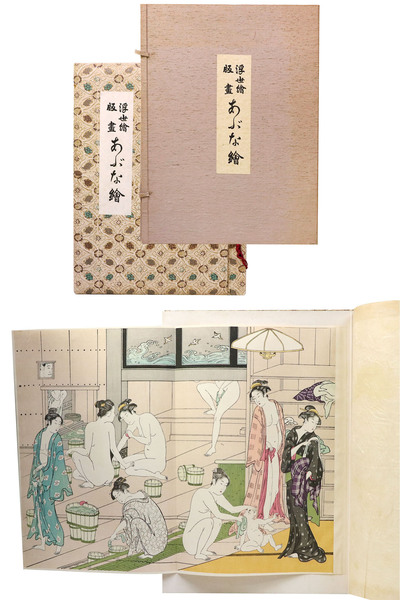 浮世繪
版畫
あぶな繪
浮世繪
版畫
あぶな繪